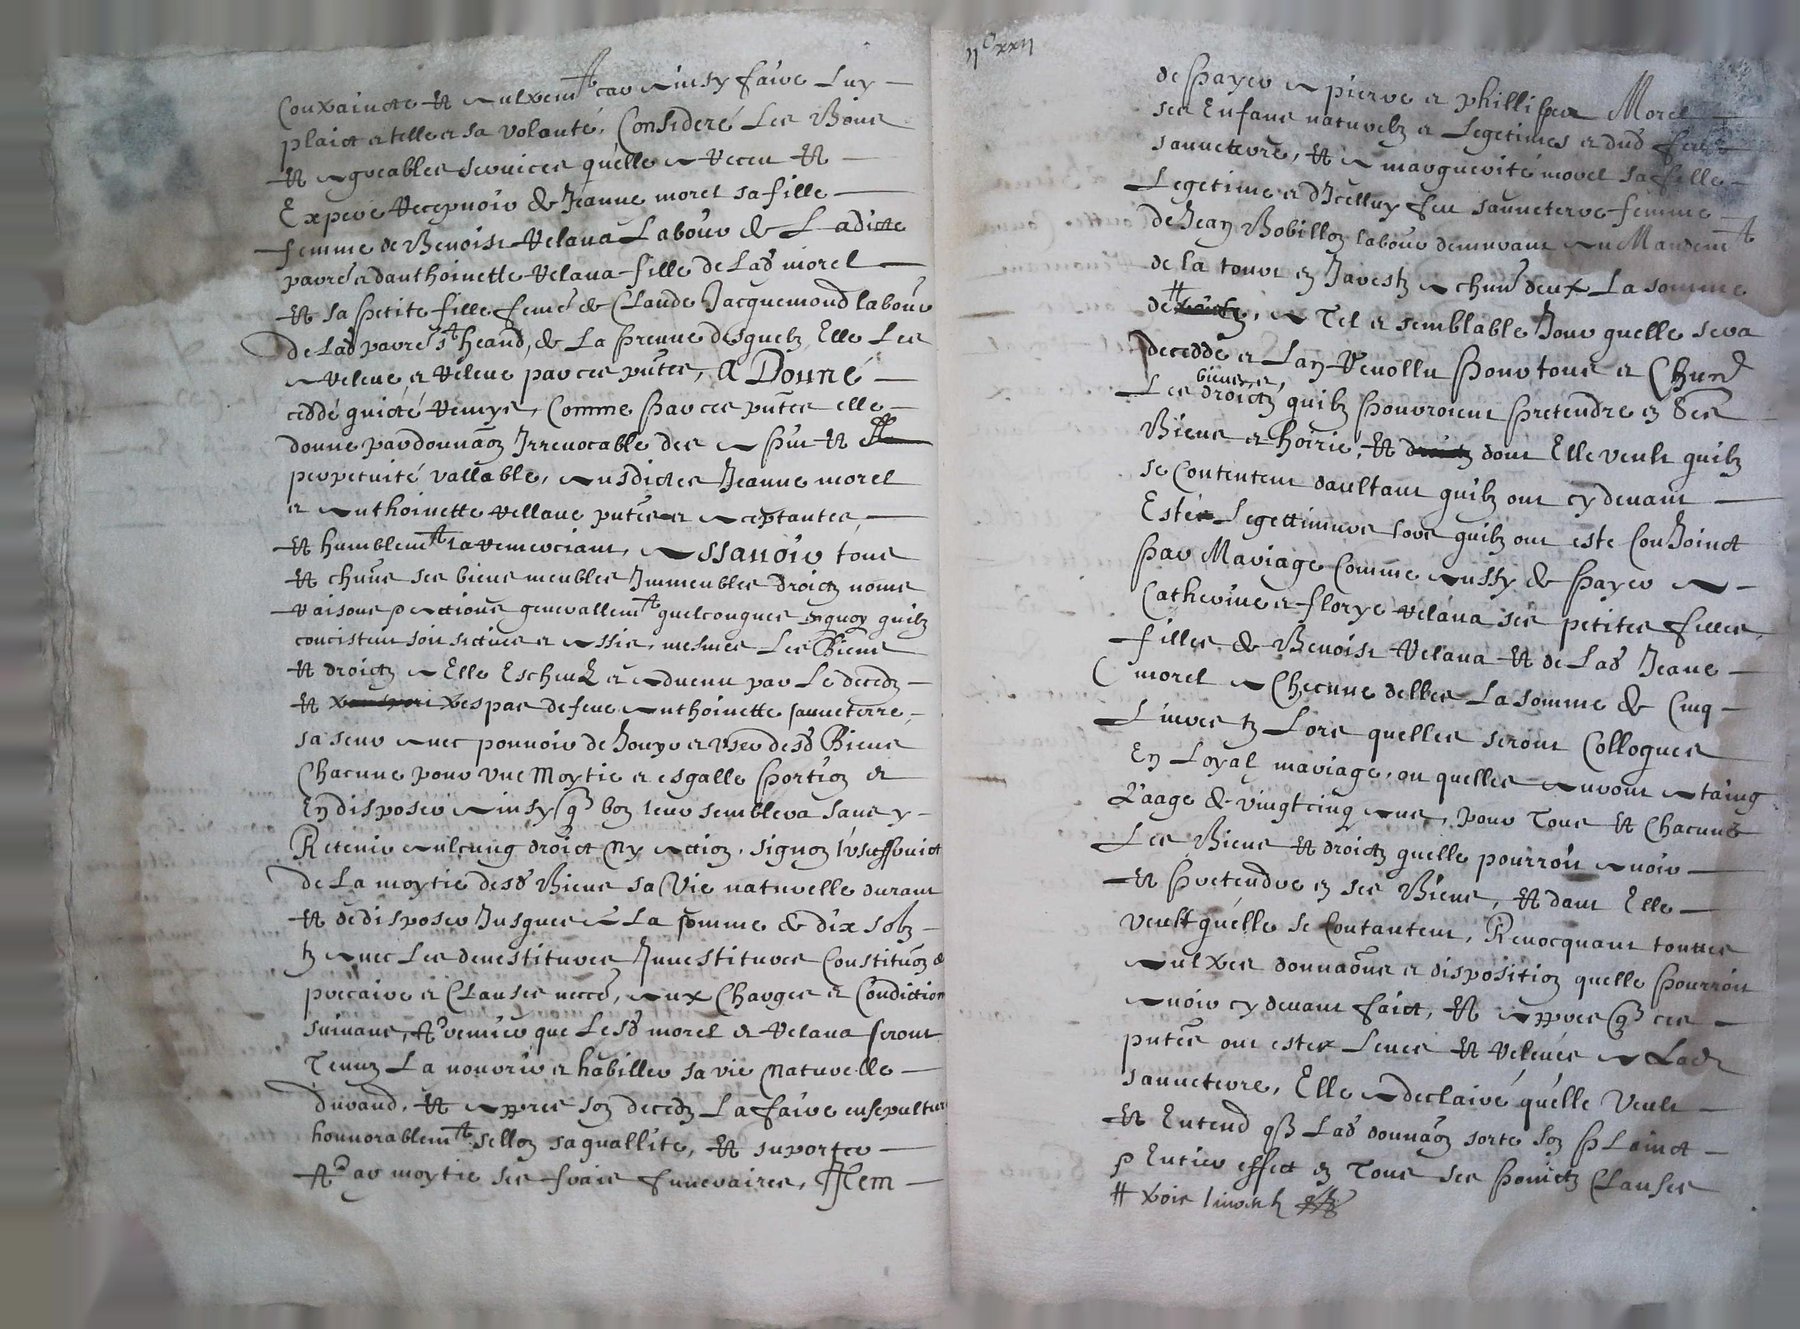 Contrainste et aultrem^t car ainsy faire luy
plaict et telle est sa volonté, Consideré les Bons
et agreables seruices quelle a Receu et
Expere Recepuoir de Jeanne morel sa fille
femme de Benoist Velana Labour de Ladicte
parre et danthoinette Velana fille de Lad morel
et sa petite fille feme de Claude Jacquemond labour
de Lad parre s^t heand, de La preuue desquelz Elle Les
a Releue et Releue par ces pntes, A Donné
ceddé quicté Remys, Comme par ces pntes elle
donne par donnaon Irreuocable des a pnt et
perpetuité vallable, ausdictes Jeanne morel
et Anthoinette Vellaue pntes et aceptantes
et humblem^t la Remerciant, Assauoir tous
et chuns ses biens meubles Immeubles droictz noms
Raisons et actions generallem^t quelconques enquoy quilz
concistent soit sictues et assis, mesmes Les Biens
et droictz a Elle Escheuz et aduenu par Le decedz
et trespas de feue Anthoinette sauueterre,
sa seur Auec pouuoir de Jouyr et vser desd Biens
Chacune pour vne Moytie et esgalle portion et
En disposer Ainsy q bon leur semblera sans y
Retenir Aulcung droict ny action, signon lvseffruict
de La moytie desd Biens sa Vie naturelle durant
et de disposer Jusques a La somme de dix solz
tz Auec Les deuestitures Inuestitures Constituon de
precaire et Clauses necces, Aux Charges et Condiction
suiuans, A Premier que Lesd morel et Velana seront
Tenuz La nourrir et habiller sa vie Naturelle
durand, et Appres son decedz La faire ensepulture
honnorablem^t sellon sa quallite, et suporter
A par moytie ses frais funeraires, Item
ii^c xxii
de payer a pierre et phillipes Morel
ses Enfans naturelz et Legetimes et dud feu
sauueterre, et a marguerite morel sa fille
Legetime et dJcelluy feu sauueterre femme
de Jean Bobillon labour demurant Au Mandem^t
de la tourt en Jarestz a chun deux La somme
de, a Tel et semblable Jour quelle sera
decedde et Lan Reuollu pour tous et Chund
biens et,
Les droictz quilz pourroient pretendre en ses
Biens et hoirie, et dont Elle veult quilz
se Contentent daultant quilz ont cy deuant
Estés Legettimees lors quilz ont este ConJoinct
par Mariage Comme Aussy de payer a
Catherine et florye Velana ses petites filles,
filles de Benoist Velana et de Lad Jeane
morel a Checune delles La somme de Cinq
Liures tz Lors quelles seront Colloques
En Loyal mariage, ou quelles auront ataing
L'aage de vingtcing Ans, pour Tous et Chacuns
Les Biens et droictz quelle pourroit auoir
et pretendre en ses Biens, et dont Elle
veult quelle se Contantent, Reuocquant touttes
aultres donnaons et disposition quelle pourroit
auoir cy deuant faict, et Appres q ces
pntes ont estes Leues et Releués a Lad
sauueterre, Elle a declairé quelle Veult
et Entend q Lad donnaon sorte son plainct
et Entier effect en Tous ses poinctz Clauses
# trois liures tz